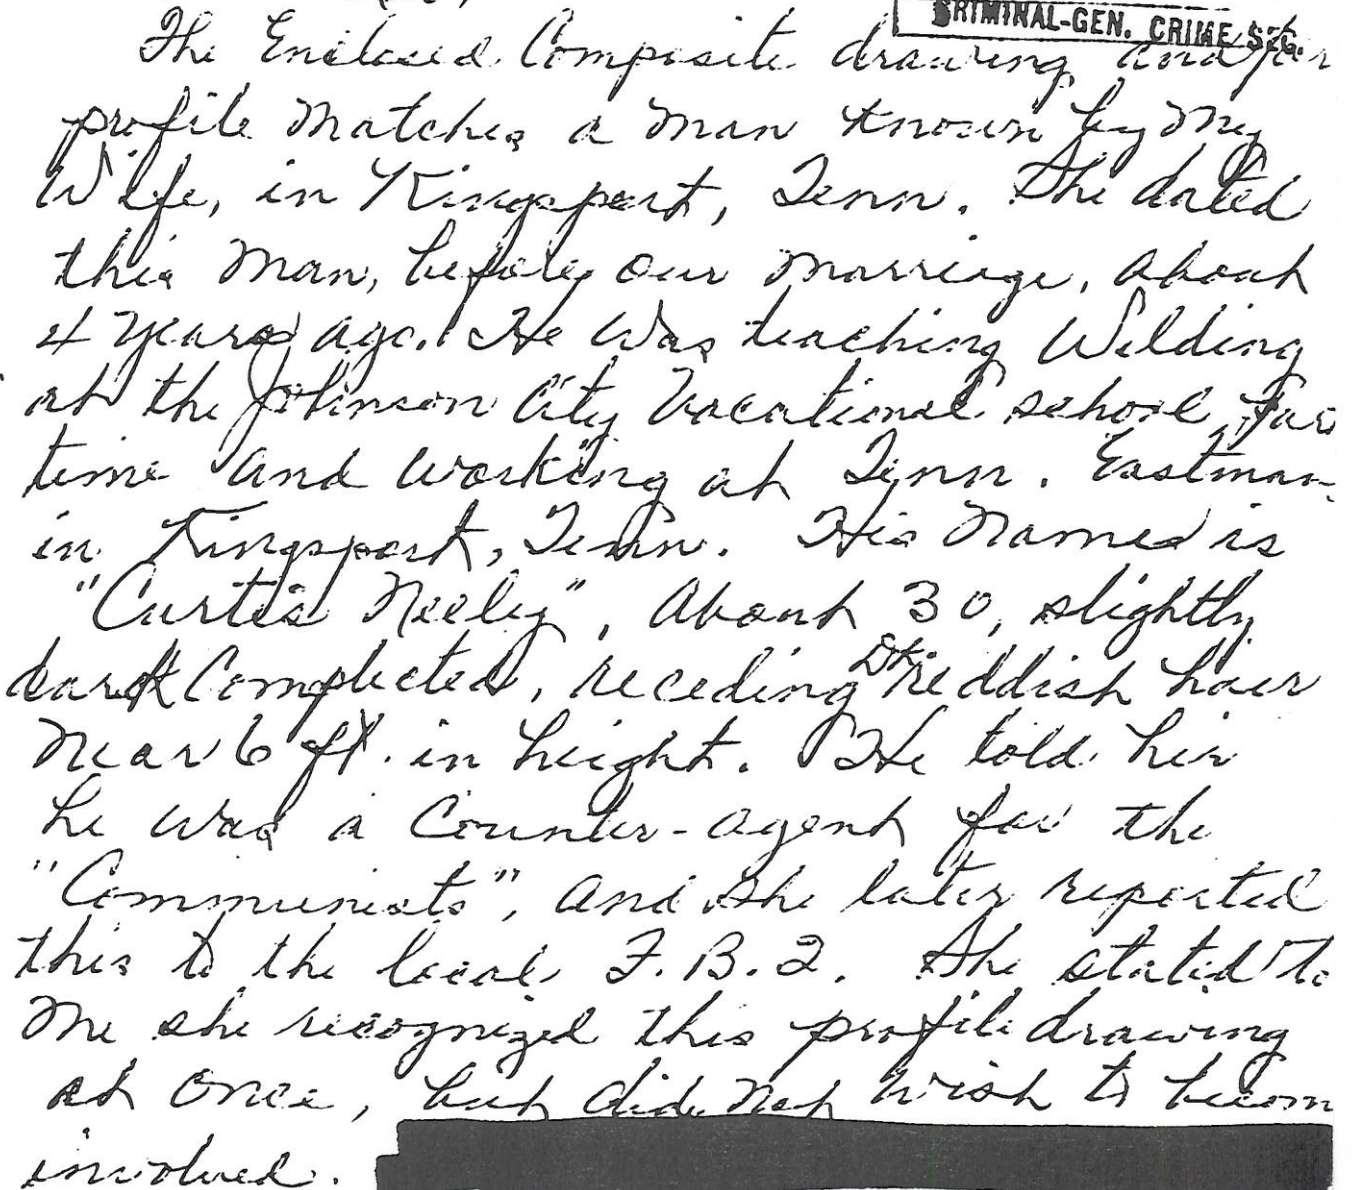 CRIMINAL-GEN. CRIME SEC.
The Enclosed Composite drawing and/or
profile matches a man known by my
Wife, in Kingsport, Tenn. She dated
this man, before our marriage, about
4 years ago. He was teaching Welding
at the Johnson City Vocational school par
time and working at Tenn. Eastman
in Kingsport, Tenn. His Name is
"Curtis Neeley", about 30, slightly
dark Complected, receding Dk. reddish hair
Near 6 ft. in height. He told her
he was a Counter-agent for the
"Communists", and she later reported
this to the local F.B.I. She stated to
me she recognized this profile drawing
at once, but did not wish to becom
involved.